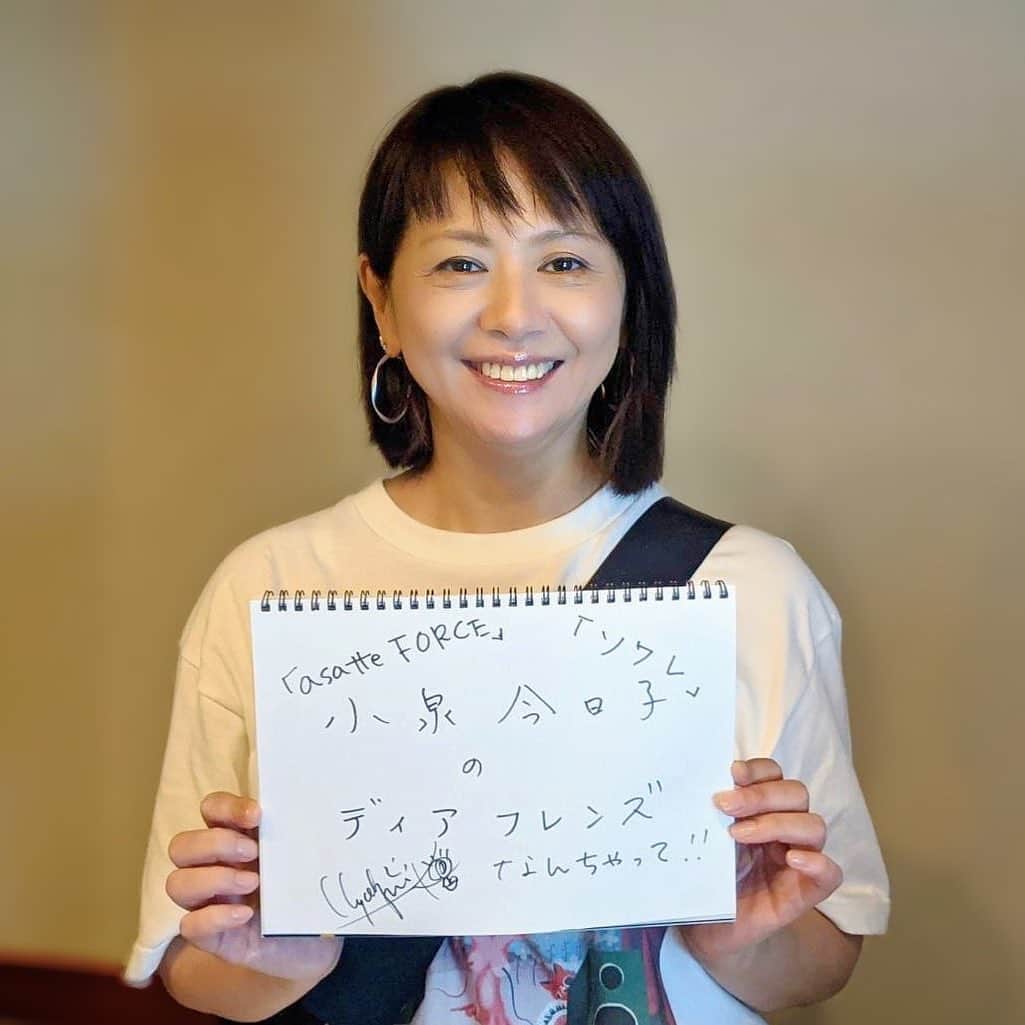 「asatte FORCE」 「ソワレ」
小泉今日子
の
ディア フレンズ
なんちゃって!!